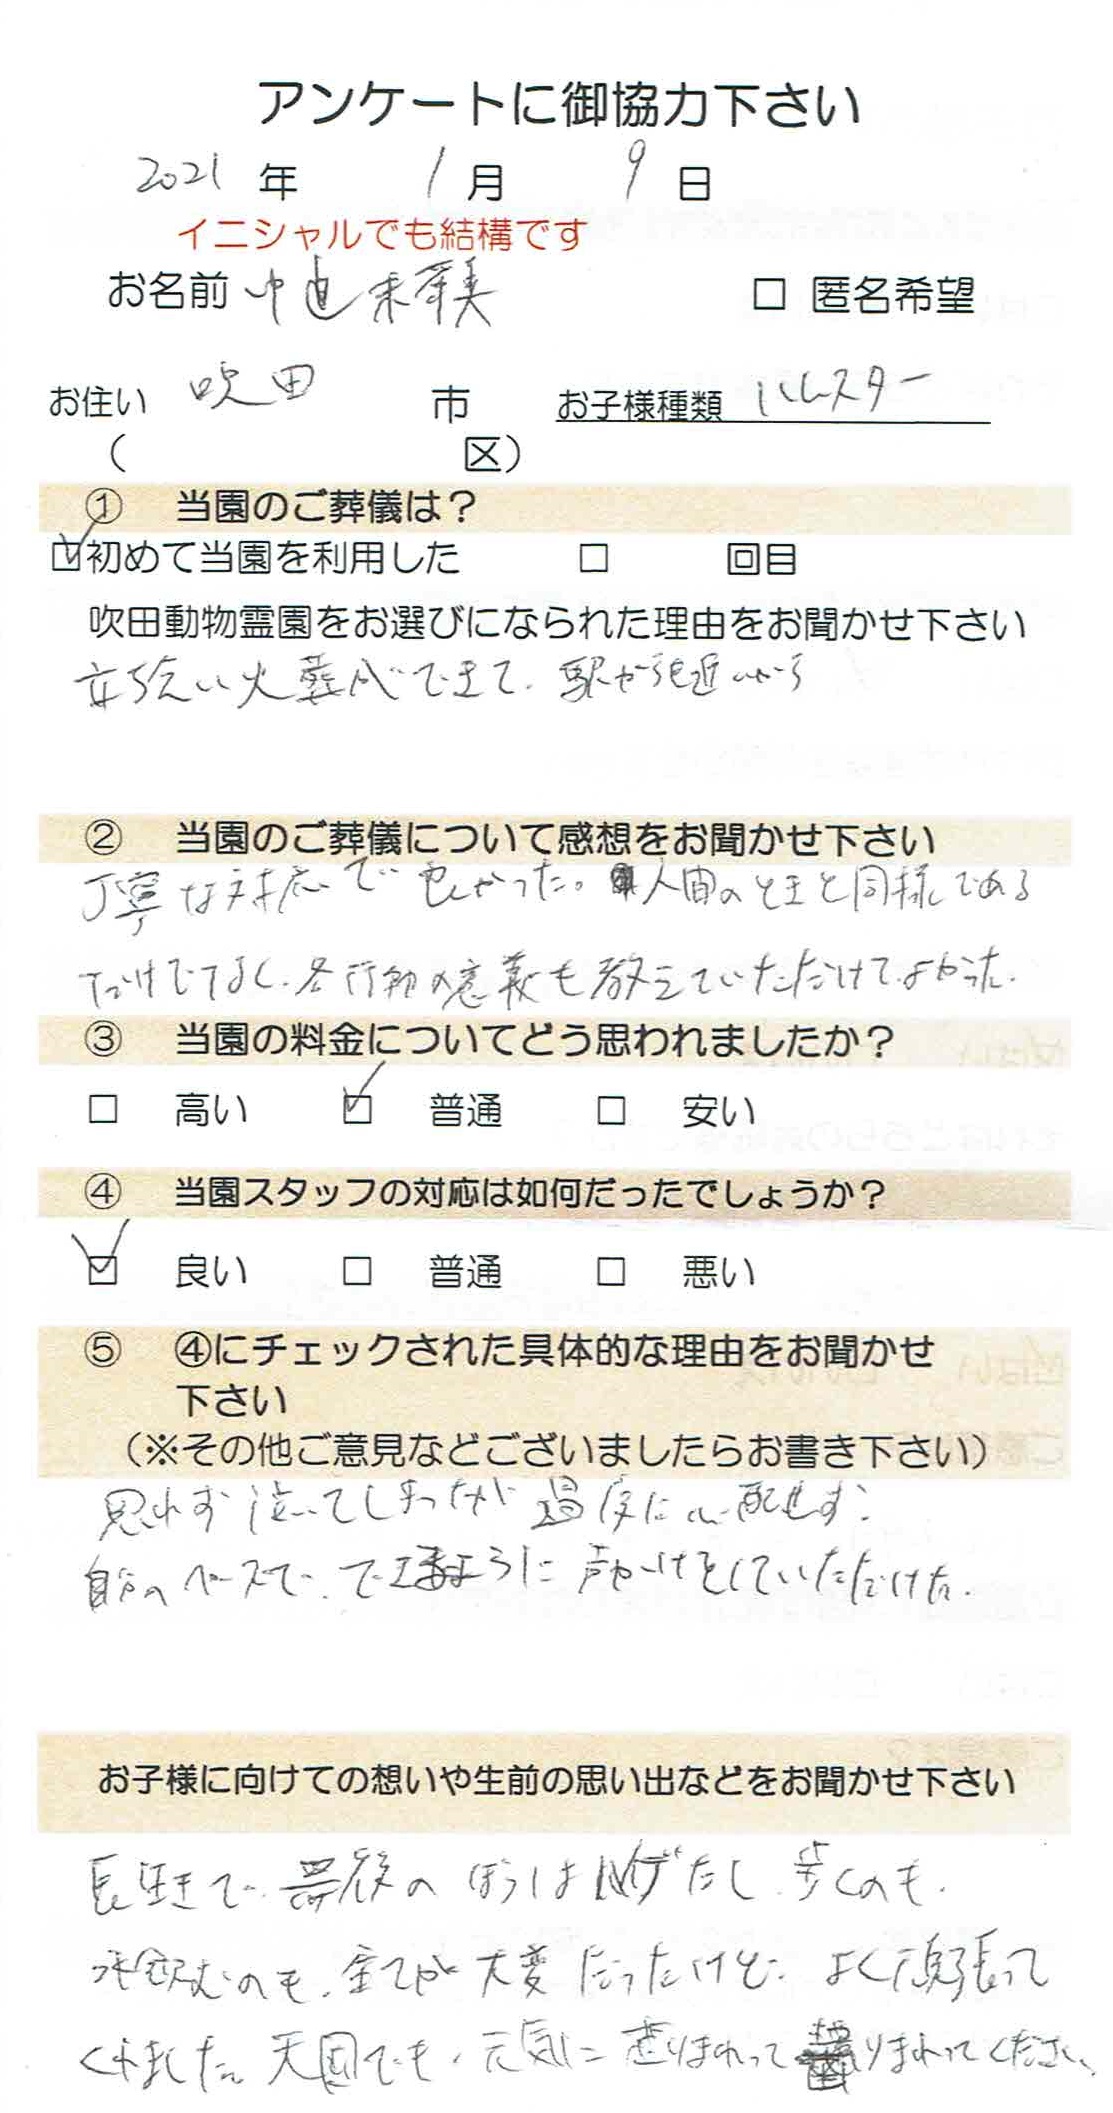 アンケートに御協力下さい
2021 年 1 月 9 日
イニシャルでも結構です
お名前 中道 美 □ 匿名希望
お住い 吹田 市 お子様種類 ハムスター
( 区)
① 当園のご葬儀は？
☑初めて当園を利用した □ 回目
吹田動物霊園をお選びになられた理由をお聞かせ下さい
立ち会い火葬ができて、駅から近いから
② 当園のご葬儀について感想をお聞かせ下さい
丁寧な対応で良かった。人間のときと同様である
だけでなく、各行動の意義も教えていただけてよかった。
③ 当園の料金についてどう思われましたか？
□ 高い ☑ 普通 □ 安い
④ 当園スタッフの対応は如何だったでしょうか？
☑ 良い □ 普通 □ 悪い
⑤ ④にチェックされた具体的な理由をお聞かせ
下さい
（※その他ご意見などございましたらお書き下さい）
思わず泣いてしまったが過度に心配せず、
自分のペースで、できるように声かけをしていただけた。
お子様に向けての想いや生前の思い出などをお聞かせ下さい
長生きで、最後のほうは ハゲだし、歩くのも、
水飲むのも、全てが大変だったけど、よく頑張って
くれました。天国でも、元気に走りまわって りまわってください。